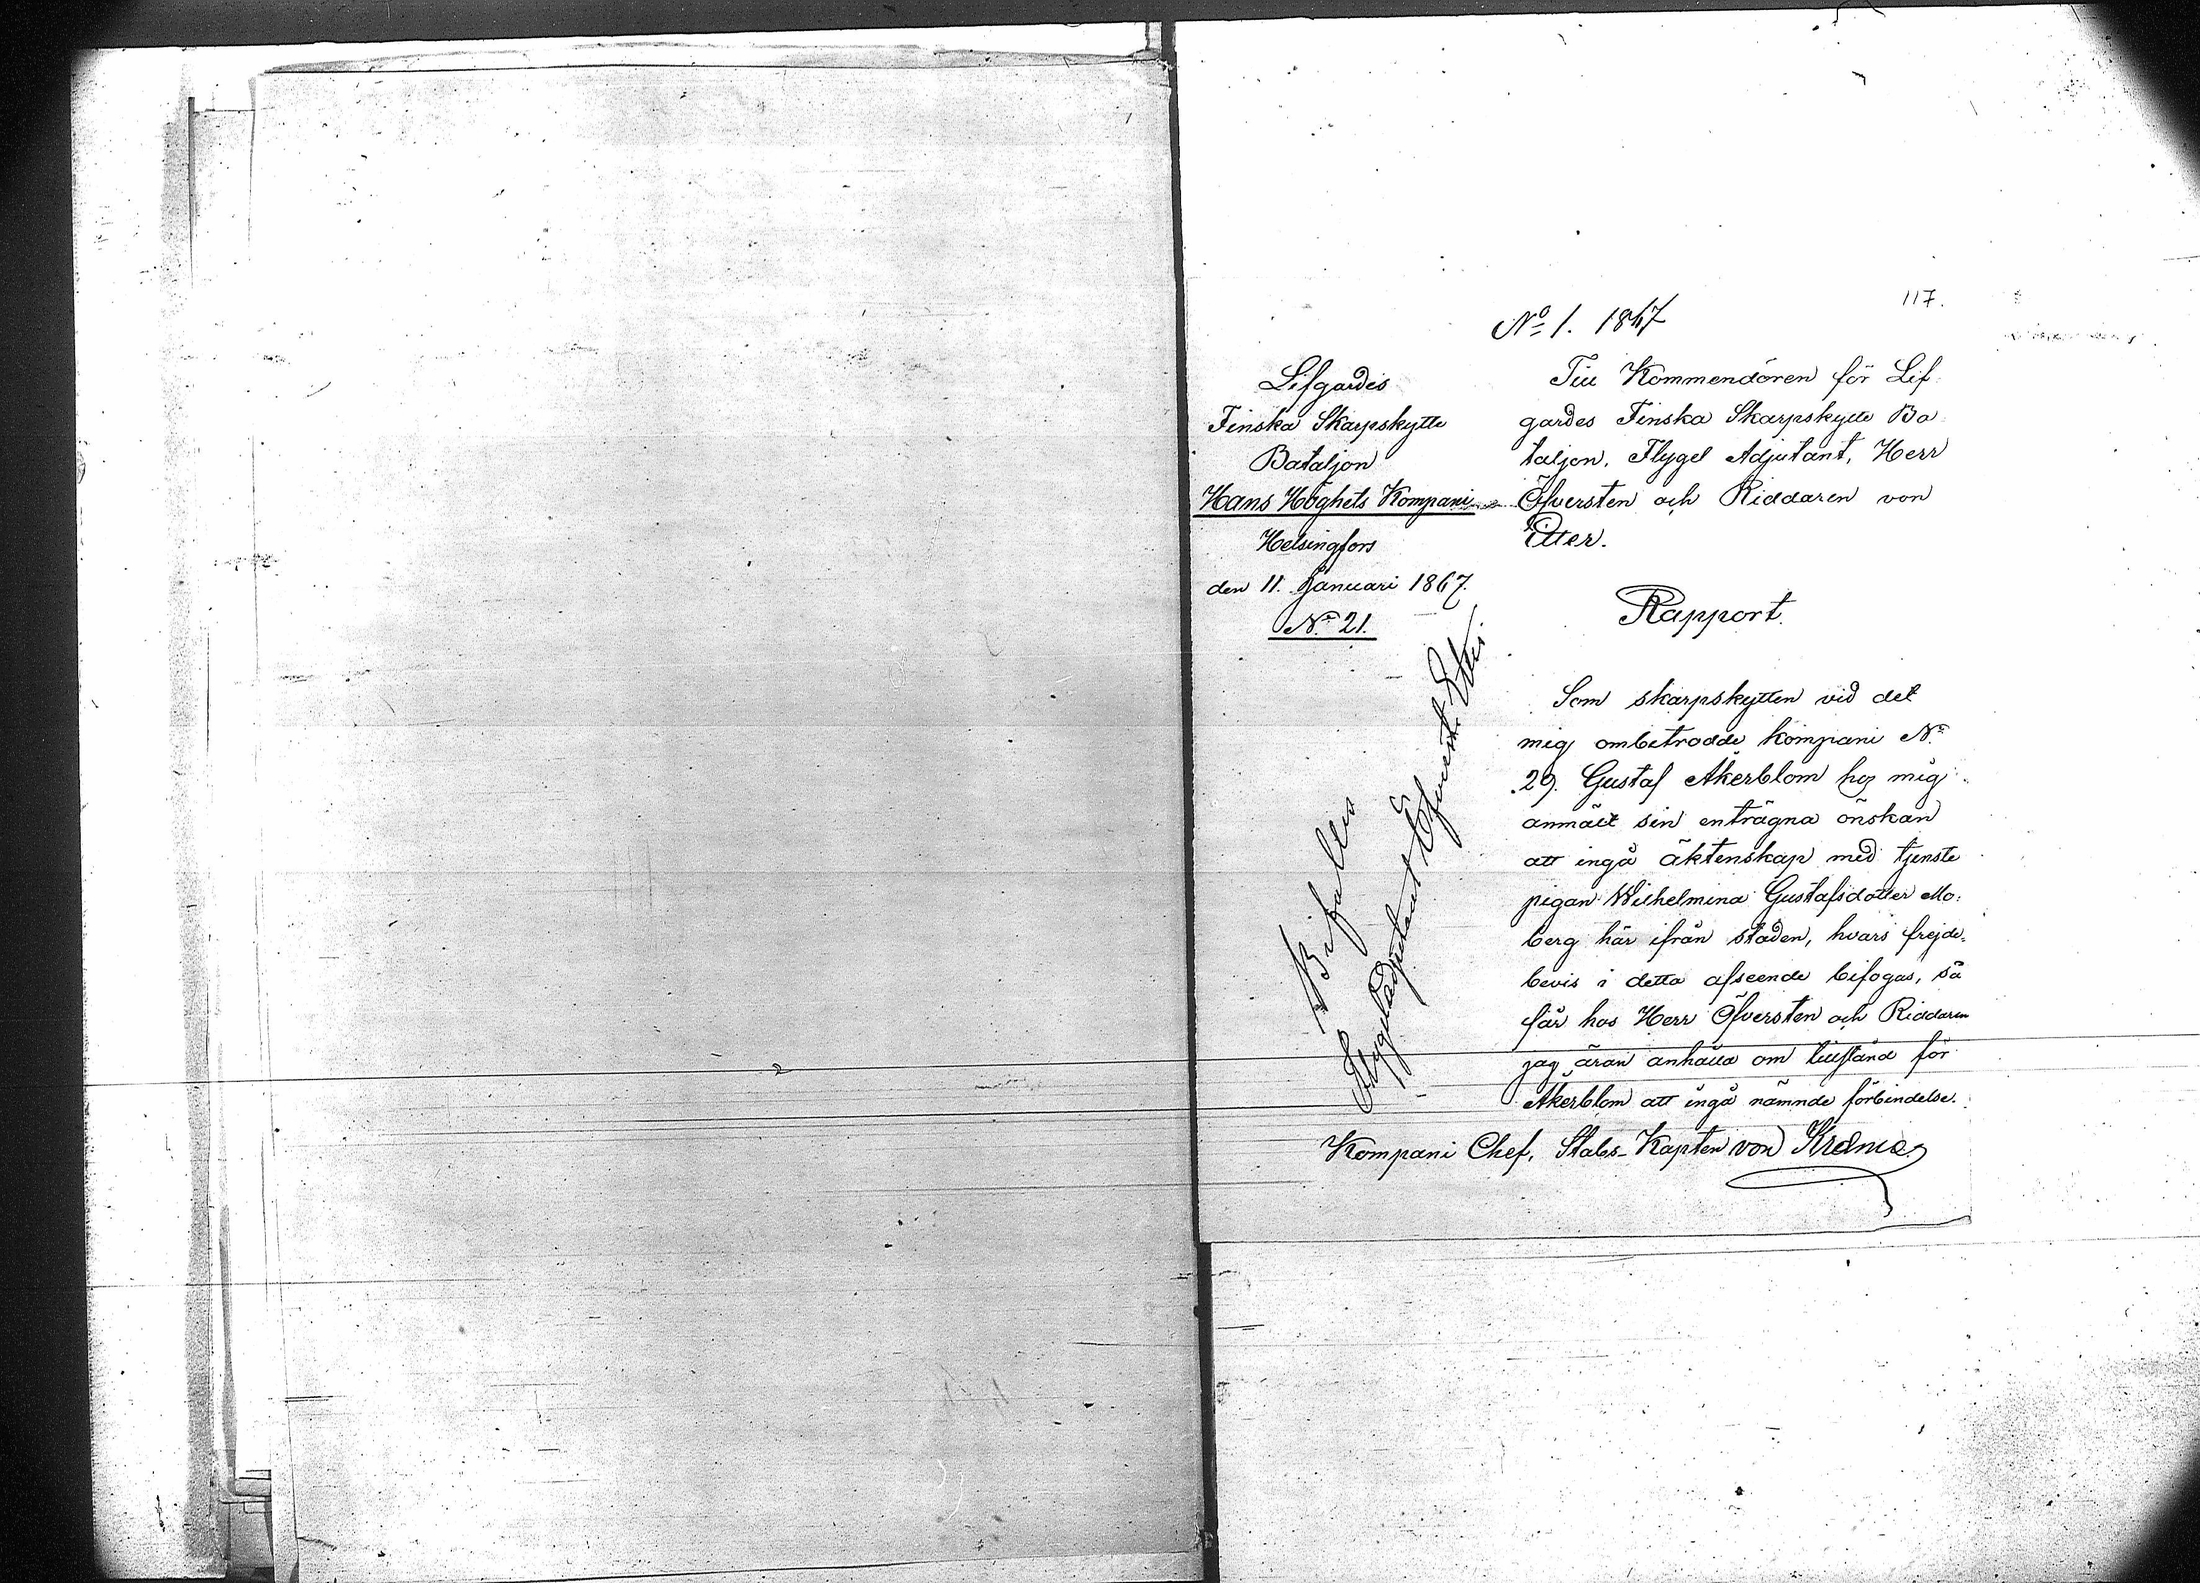 117.
No 1. 1867
Lifgardes
Finska Skarpskytte
Bataljon
Hans Höghets Kompani
Helsingfors
den 11. Januari 1867.
No 21.
Till Kommendören för Lif
gardes Finska Skarpskytte Ba
taljon, Flygel Adjutant, Herr
Öfversten och Riddaren von
Etter.
Rapport.
Som skarpskytten vid det
mig ombetrodde kompani No
29. Gustaf Åkerblom hos mig
anmält sin enträgna önskan
att ingå äktenskap med tjenste
pigan Wilhelmina Gustafsdotter Mo-
berg här ifrån staden, hvars frejde-
bevis i detta afseende bifogas, så
får hos Herr Öfversten och Riddaren
jag äran anhålla om tillstånd för
Åkerblom att ingå nämnde förbindelse.
Kompani Chef, Stabs-Kapten von
Bifalles
Flygeladjutant Öfverste Etter